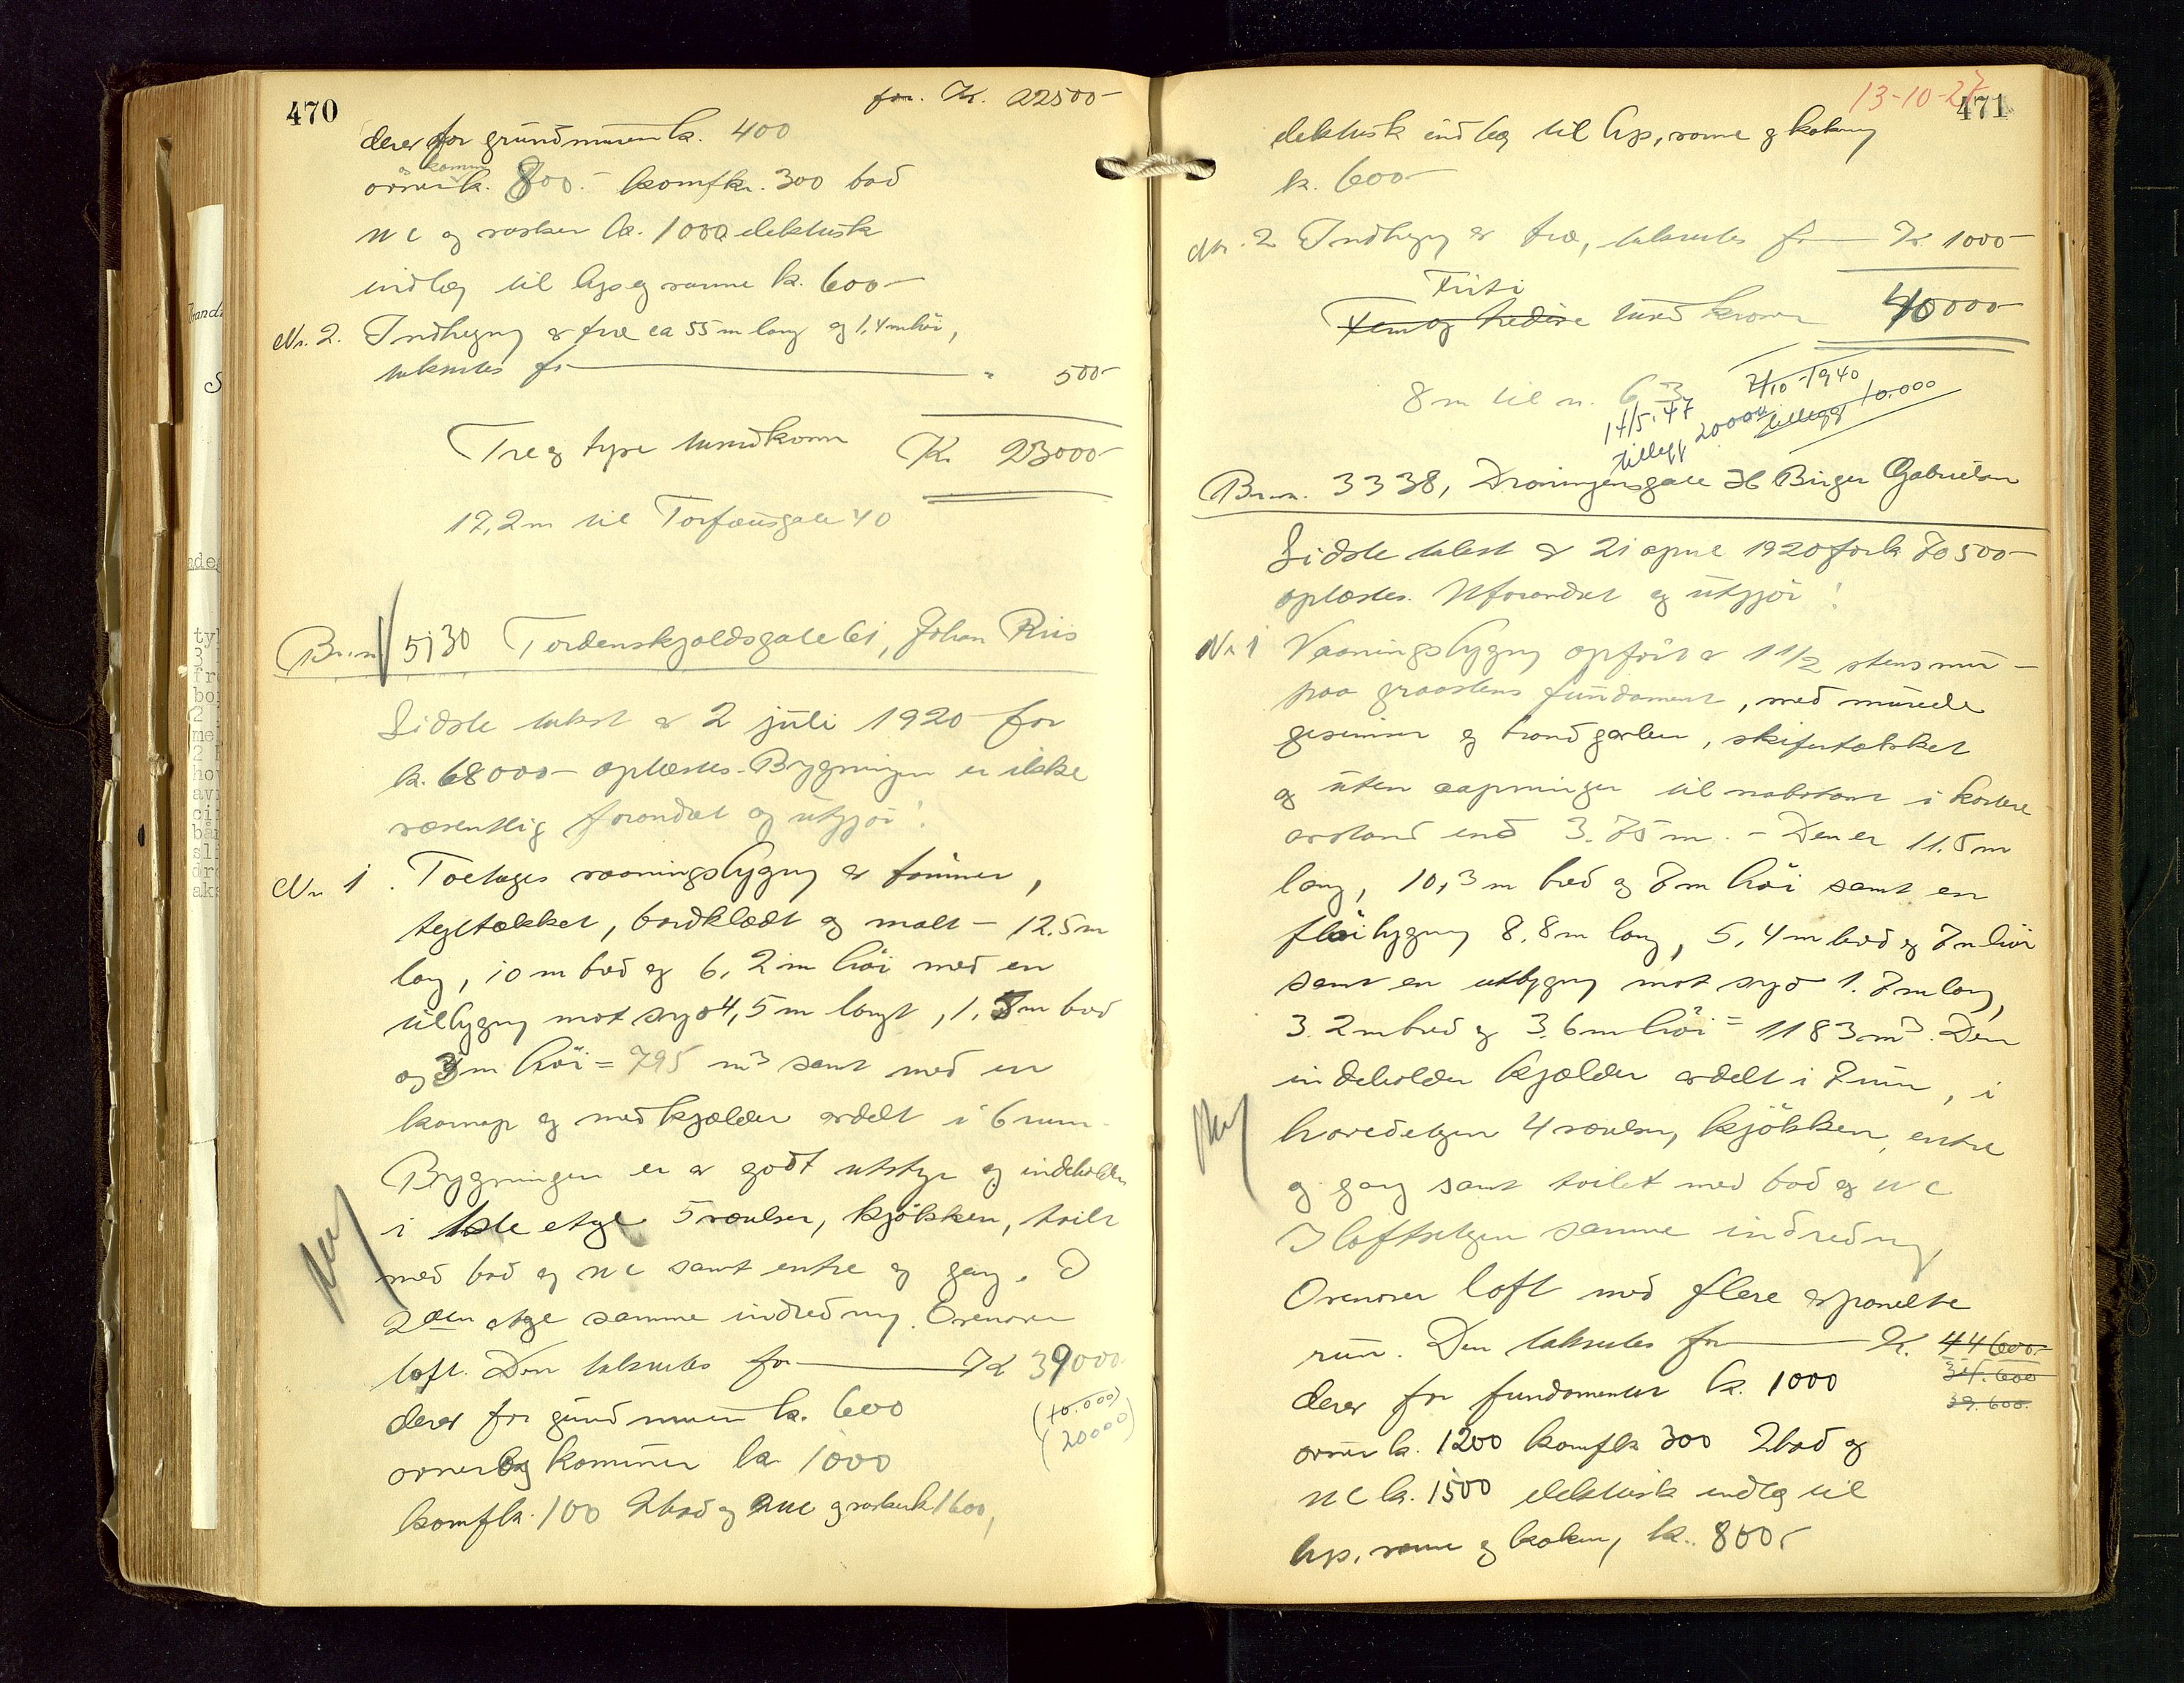 470
for. Kr. 22500-
derav for grundmuren kr. 400
ovner og komin kr. 800.- komfkr. 300 bad
W C og vasker kr. 1000 elektrisk
indlæg til lys og varme kr. 600-
Nr. 2. Indhegng av træ ca 55 m lang og 1,4 m höi,
takseres for " 500-
Tre og tyve tusind kroner Kr. 23000-
17,2 m til Torfæusgate 40
Br. n. 5130 Tordenskjoldsgate 61, Johan Riis
Sidste takst av 2 juli 1920 for
kr. 68000- oplæstes. Bygningen er ikke
væsentlig forandret og utgjör:
Nr. 1. Toetages vaaningsbygng av tømmer,
tegltækket, bordklædt og malt - 12.5 m
lang, 10 m bred og 6,2 m höi med en
tilbygng mot syd 4,5 m langt, 1.5 m bred
og 3 m höi = 795 m3 samt med en
karnap og med kjælder avdelt i 6 rum.
Bygningen er av godt utstyr og indeholder
i 1ste etage 5 værelser, kjökken, toilet
med bad og W C samt entre og gang. I
2den etage samme indredning. Ovenover
loft. Den takseres for Kr 39000
derav for grundmuren kr. 600
(10.000)
(20000)
ovner og kominer kr. 1000
komfkr. 100 2 bad og 2 WC og vaskeri kr. 1600,
471
13-10-27
elektrisk indlæg til lys, varme og kokning
kr. 600-
Nr. 2 Indhegng av træ, takseres for Kr. 1000-
Firti
Fem og tredive tusind kroner 40000-
8 m til n. 63
7/10-1940
tillegg 10.000
14/5.47
tillegg 20000
Br. n. 3338, Dronningensgate 36 Birger Gabrielsen
Sidste takst av 21 april 1920 for kr 70500-
oplæstes. Uforandret og utgjör:
Nr 1 Vaaningsbygng opfört av 1 1/2 stens mur -
paa graastens fundament, med murede
gesimser og brandgavler, skifertækket
og uten aapninger til nabotomt i kortere
avstand end 3.75 m. - Den er 11.5 m
lang, 10,3 m bred og 7 m höi samt en
flöibygng 8.8 m lang, 5,4 m bred og 7 m höi
samt en utbygng mot syd 1.7 m lang,
3.2 m bred og 3.6 m höi = 1183 m3. Den
indeholder kjælder avdelt i 7 rum, i
hovedetagen 4 værelser, kjökken, entre
og gang samt toilet med bad og W C
I loftsetagen samme indredning
Ovenover loft med flere avpanelte
rum. Den takseres for Kr. 44600-
34.600
39.600.
derav for fundamentet kr. 1000
ovner kr. 1200 komfkr 300 2 bad og
W C kr. 1500 elektrisk indlæg til
lys, varme og kokning kr. 800,-